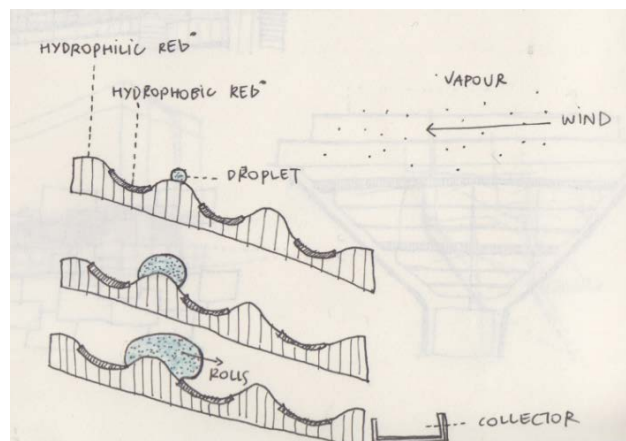 HYDROPHILIC REGº
HYDROPHOBIC REGº
VAPOUR
WIND
DROPLET
ROLLS
COLLECTOR